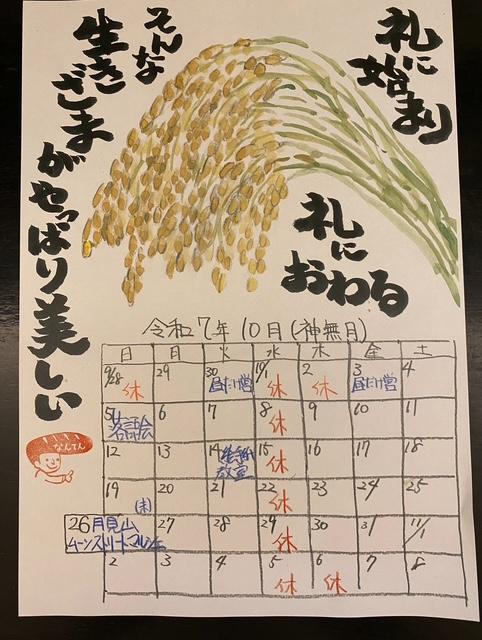 礼に
始まり
礼に
おわる
そんな
生き
ざま
がやっぱり美しい
なんてん
令和7年10月(神無月)
日 月 火 水 木 金 土
9/28 休 29 30 昼だけ営 10/1 休 2 休 3 昼だけ営 4
5 落語会 6 7 8 休 9 10 11
12 13 14 絵手紙教室 15 休 16 17 18
19 20 21 22 休 23 24 25
26月見山(未)ムーンストリートマルシェ 27 28 29 休 30 31 11/1
2 3 4 5 休 6 休 7 8